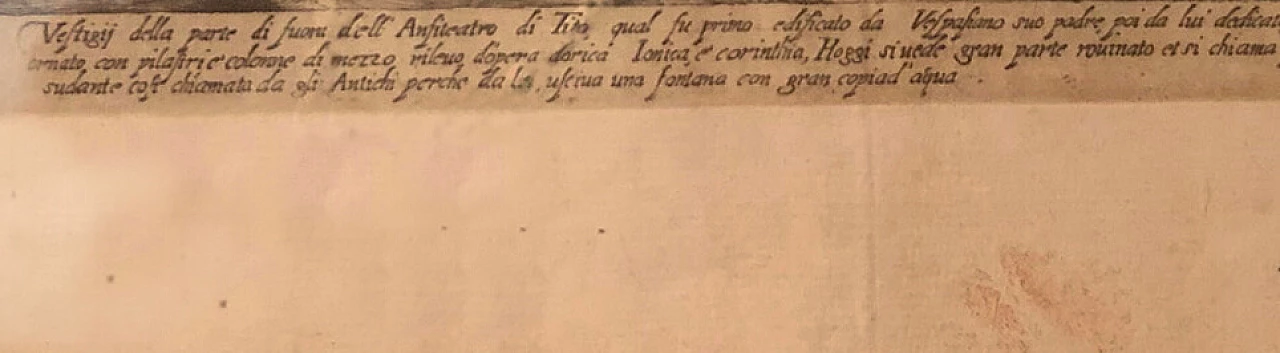 Vestigij della parte di fuora dell' Anfiteatro di Tito, qual fu primo edificato da Vespasiano suo padre, poi da lui dedicat
ornato, con pilastri e colonne di mezzo rilevo d'opera dorica Ionica, e corinthia, Hoggi si uede gran parte rouinato et si chiama
sudante cosi chiamata da gli Antichi perche da lei, usciua una fontana con gran copia d'aqua.